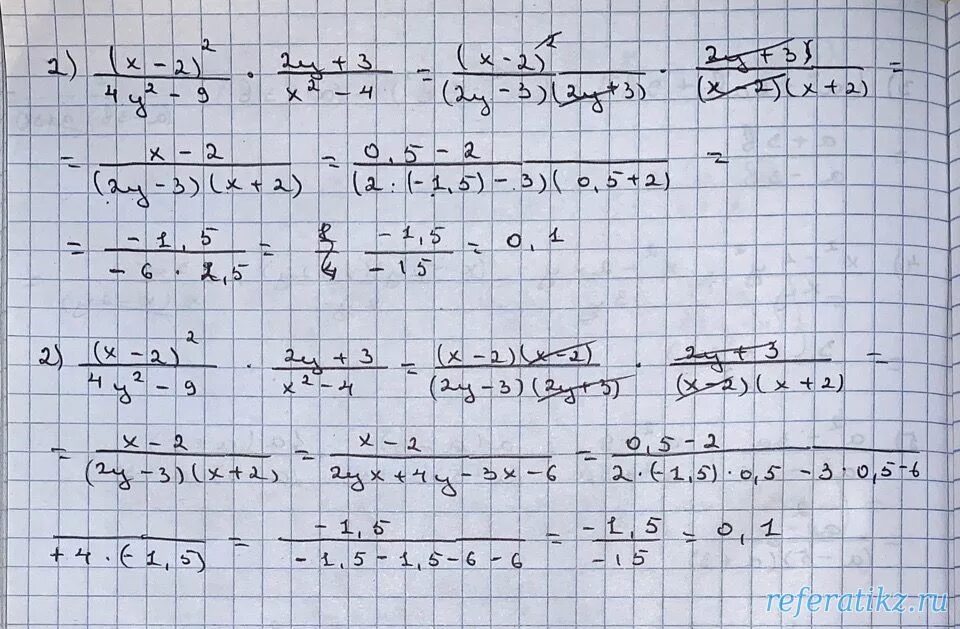 2) (x - 2)² / (4y² - 9) · (2y + 3) / (x² - 4) = (x - 2)² / ((2y - 3)(2y + 3)) · (2y + 3) / ((x - 2)(x + 2)) =
= (x - 2) / ((2y - 3)(x + 2)) = (0,5 - 2) / ((2·(-1,5) - 3)(0,5 + 2)) =
= (-1,5) / (-6 · 2,5) = (-1,5) / (-15) = 0,1
2) (x - 2)² / (4y² - 9) · (2y + 3) / (x² - 4) = (x - 2)(x - 2) / ((2y - 3)(2y + 3)) · (2y + 3) / ((x - 2)(x + 2)) =
= (x - 2) / ((2y - 3)(x + 2)) = (x - 2) / (2yx + 4y - 3x - 6) = (0,5 - 2) / (2·(-1,5)·0,5 - 3·0,5 - 6
+ 4·(-1,5)) = (-1,5) / (-1,5 - 1,5 - 6 - 6) = (-1,5) / (-15) = 0,1
referatikz.ru